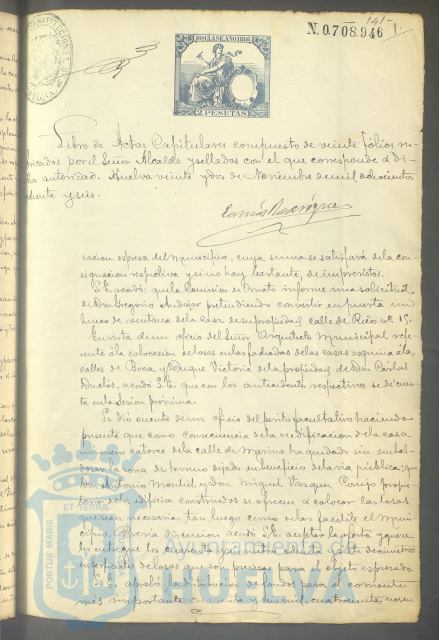 141-
1
N. 0.708.946
10ª CLASE. AÑO 1886
2 PESETAS
Libro de Actas Capitulares compuesto de veinte folios ru-
bricados por el Señor Alcalde y sellados con el que corresponde a di-
cha autoridad. Huelva veinte y dos de Noviembre de mil ochocientos
ochenta y seis.
racion espesa del Municipio, cuya suma se satisfará de la con-
signacion respectiva y si no hay bastante, de imprevistos.
S.E. acordó: que la Comision de Ornato informe una solicitud
de Don Gregorio Andujar pretendiendo convertir en puerta un
hueco de ventana de la casa de su propiedad, calle de Rico nº 15.
En vista de un oficio del Señor Arquitecto Municipal refe-
rente á la colocacion de losas en las fachadas de las casas esquina á la
calles de Boca y Duque Victoria de la propiedad de Don Carlos
acordó S.E. que con los antecedentes respectivos se dé cuen-
ta en la sesion próxima.
Se dió cuenta de un oficio del perito facultativo haciendo
presente que como consecuencia de la reedificacion de la casa
número catorce de la calle de Marina ha quedado sin embal-
dosar la zona de terreno dejado en beneficio de la via pública; que
Don Antonio Montiel y Don Miguel Vazquez propie-
del edificio construido se ofrecen a colocar las losas
que sean necesarias tan luego como se las facilite el Muni-
cipio. Prévia discusion acordó S.E. aceptar la oferta y que se
les entregue los
de losas que son precisas para el objeto espresado
aprobó la distribucion de fondos para el corriente
mes importante cuarenta y seis mil cuatrocientos noven
PORTUS MARIS
ET TERRÆ
Ayuntamiento de
HUELVA